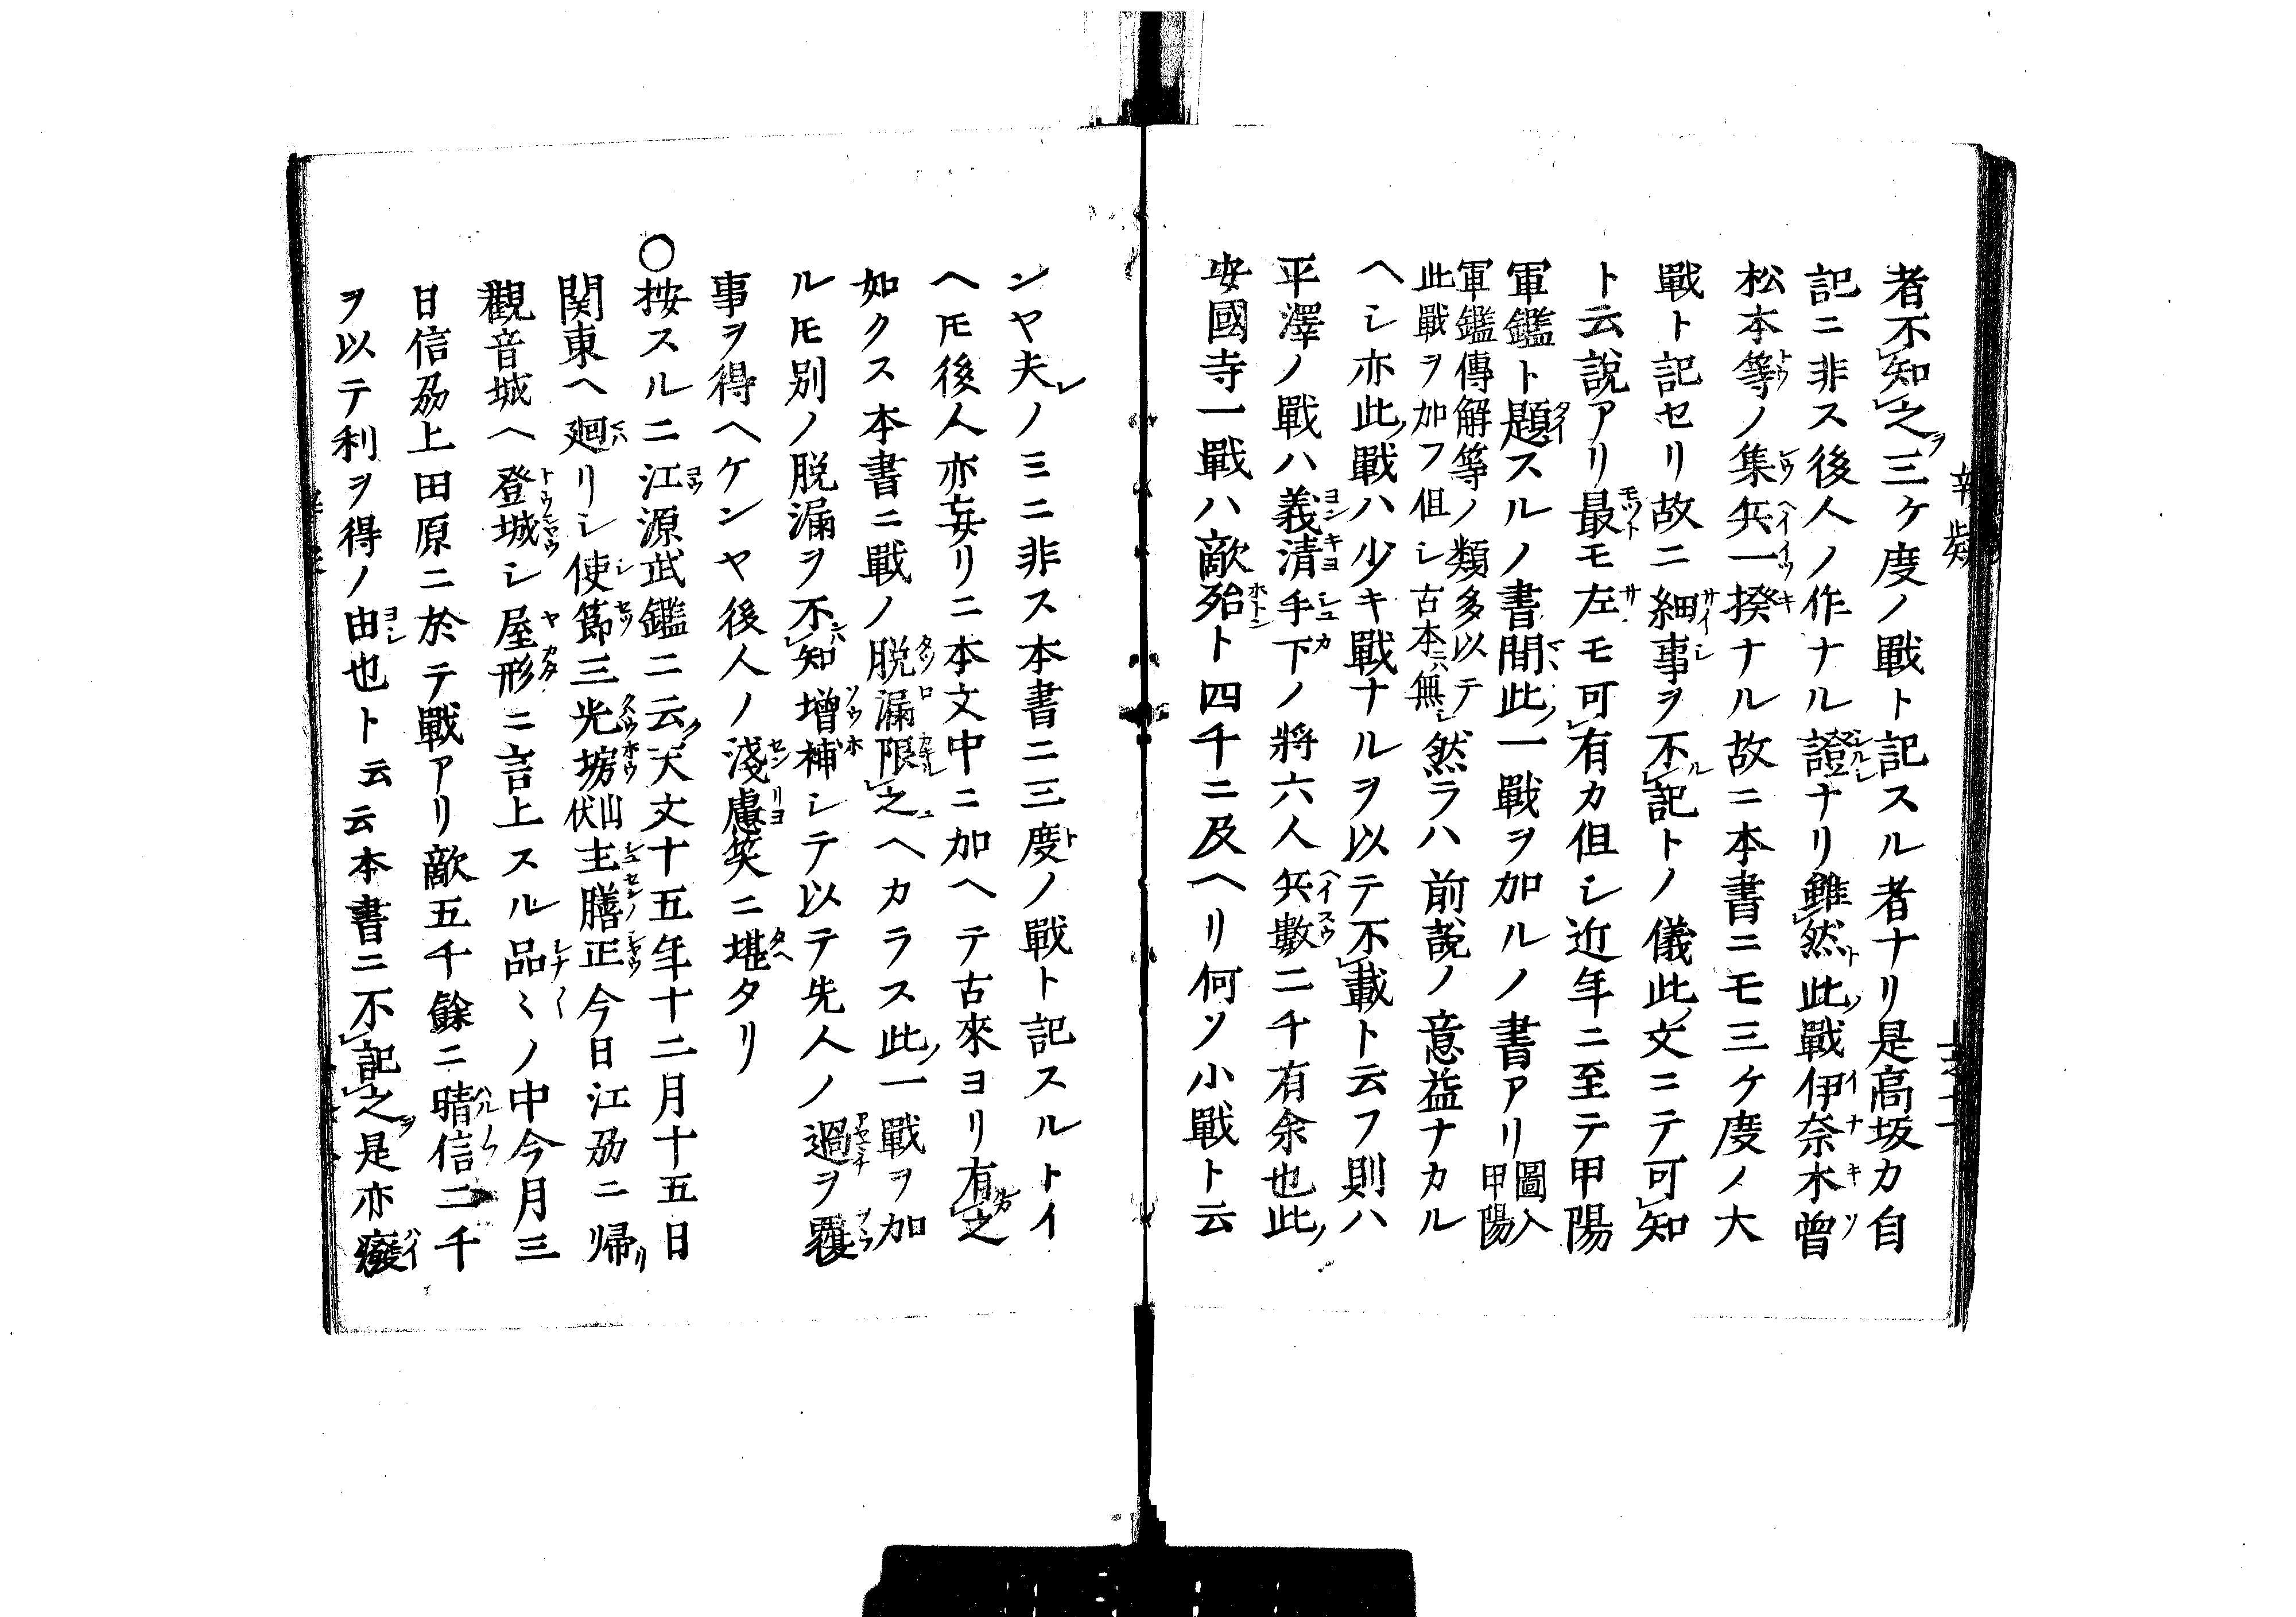 者不知之三ケ度ノ戰ト記スル者ナリ是高坂カ自
記ニ非ス後人ノ作ナル證ナリ雖然此戰伊奈木曽
松本等ノ集兵一揆ナル故ニ本書ニモ三ケ度ノ大
戰ト記セリ故ニ細事ヲ不記トノ儀此文ニテ可知
ト云説アリ最モ左モ可有カ但シ近年ニ至テ甲陽
軍鑑ト題スルノ書間此一戰ヲ加ルノ書アリ圖入甲陽
軍鑑傳解等ノ類多以テ
此戰ヲ加フ但シ古本ニハ無シ然ラハ前説ノ意益ナカル
ヘシ亦此戰ハ少キ戰ナルヲ以テ不載ト云フ則ハ
平澤ノ戰ハ義清手下ノ將六人兵數二千有余也此
安國寺一戰ハ敵殆ト四千ニ及ヘリ何ソ小戰ト云
ンヤ夫ノミニ非ス本書ニ三度ノ戰ト記スルトイ
ヘ𪜈後人亦妄リニ本文中ニ加ヘテ古來ヨリ有之
如クス本書ニ戰ノ脱漏限之ヘカラス此一戰ヲ加
ル𪜈別ノ脱漏ヲ不知増補シテ以テ先人ノ過ヲ覆
事ヲ得ヘケンヤ後人ノ淺慮笑ニ堪タリ
○按スルニ江源武鑑ニ云ク天文十五年十二月十五日
関東ヘ廻リシ使節三光坊山伏主膳正今日江刕ニ帰リ
觀音城ヘ登城シ屋形ニ言上スル品〻ノ中今月三
日信刕上田原ニ於テ戰アリ敵五千餘ニ晴信二千
ヲ以テ利ヲ得ノ由也ト云云本書ニ不記之是亦癈